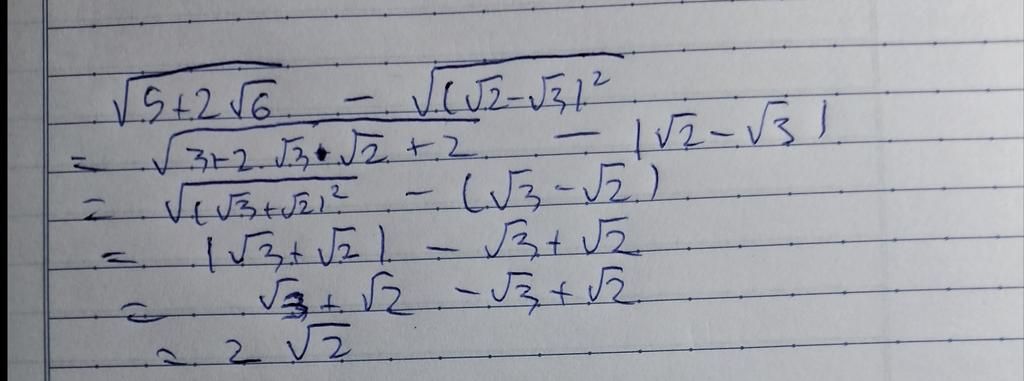 √(5+2√6) - √((√2-√3)²)
= √(3+2.√3•√2+2) - |√2-√3|
= √((√3+√2)²) - (√3-√2)
= |√3+√2| - √3+√2
= √3+√2 -√3+√2
= 2√2